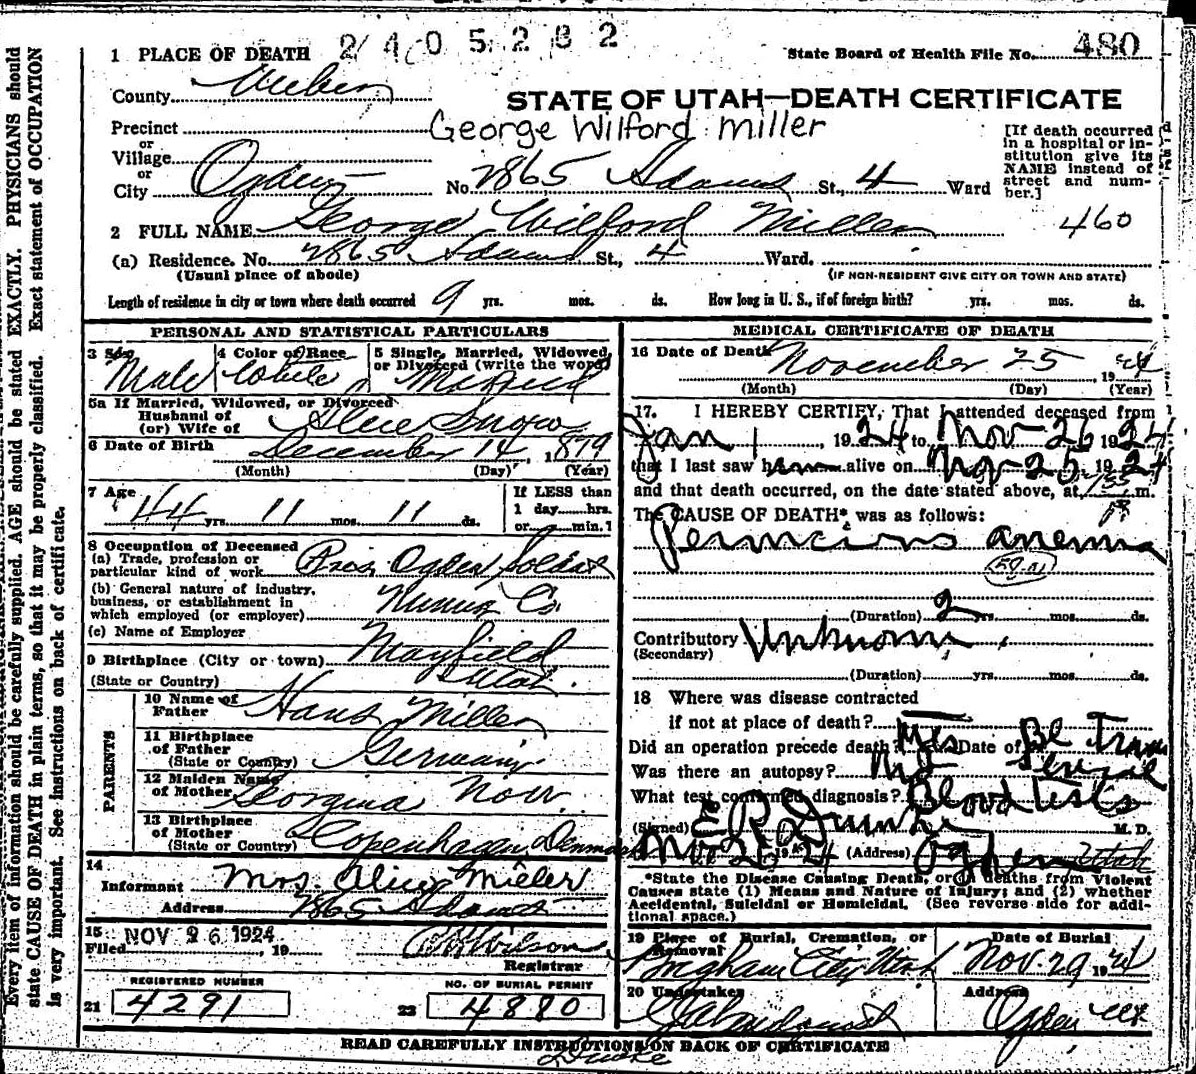 1 PLACE OF DEATH 2405282 State Board of Health File No. 480
County Weber
STATE OF UTAH—DEATH CERTIFICATE
Precinct
George Wilford Miller
or
Village
or
City Ogden No. 2865 Adams St., 4 Ward
[If death occurred in a hospital or in-
stitution give its
NAME instead of
street and num-
ber.]
460
2 FULL NAME George Wilford Miller
(a) Residence. No. 2865 Adams St., 4 Ward.
(Usual place of abode) (IF NON-RESIDENT GIVE CITY OR TOWN AND STATE)
Length of residence in city or town where death occurred 9 yrs. mos. ds. How long in U. S., if of foreign birth? yrs. mos. ds.
PERSONAL AND STATISTICAL PARTICULARS
3 Sex Male
4 Color or Race White
5 Single, Married, Widowed
or Divorced (write the word) Married
5a If Married, Widowed, or Divorced
Husband of
(or) Wife of Alice Snow
6 Date of Birth December 14, 1879
(Month) (Day) (Year)
7 Age 44 yrs. 11 mos. 11 ds.
If LESS than
1 day hrs.
or min.?
8 Occupation of Deceased
(a) Trade, profession or
particular kind of work Pres. Ogden
(b) General nature of industry,
business, or establishment in
which employed (or employer) Co.
(c) Name of Employer
9 Birthplace (City or town) Mayfield
(State or Country) Utah.
PARENTS
10 Name of
Father Hans Miller
11 Birthplace
of Father
(State or Country) Germany
12 Maiden Name
of Mother Georgina
13 Birthplace
of Mother
(State or Country) Copenhagen, Denmark
14
Informant Mrs. Alice Miller
Address 2865 Adams
15
Filed NOV 26 1924, 19
Wilson
Registrar
REGISTERED NUMBER
21 4291
NO. OF BURIAL PERMIT
22 4880
MEDICAL CERTIFICATE OF DEATH
16 Date of Death November 25, 1924
(Month) (Day) (Year)
17. I HEREBY CERTIFY, That I attended deceased from
Jan 1, 1924 to Nov 26 1924
that I last saw him alive on Nov 25, 1924
and that death occurred, on the date stated above, at m.
The CAUSE OF DEATH* was as follows:
Pernicious anemia
(Duration) 2 yrs. mos. ds.
Contributory Unknown
(Secondary)
(Duration) yrs. mos. ds.
18 Where was disease contracted
if not at place of death?
Did an operation precede death? Yes Date of Bl Trans
Was there an autopsy? No
What test confirmed diagnosis? Blood Tests
(Signed) E. R. Dumke M. D.
Nov 26 1924 (Address) Ogden Utah
*State the Disease Causing Death, or in deaths from Violent
Causes state (1) Means and Nature of Injury; and (2) whether
Accidental, Suicidal or Homicidal. (See reverse side for addi-
tional space.)
19 Place of Burial, Cremation, or
Removal
Brigham City Utah
Date of Burial
Nov. 29 1924
20 Undertaker
Address
Ogden Ut
READ CAREFULLY INSTRUCTIONS ON BACK OF CERTIFICATE
Dumke
Every item of information should be carefully supplied. AGE should be stated EXACTLY. PHYSICIANS should
state CAUSE OF DEATH in plain terms, so that it may be properly classified. Exact statement of OCCUPATION
is very important. See instructions on back of certificate.